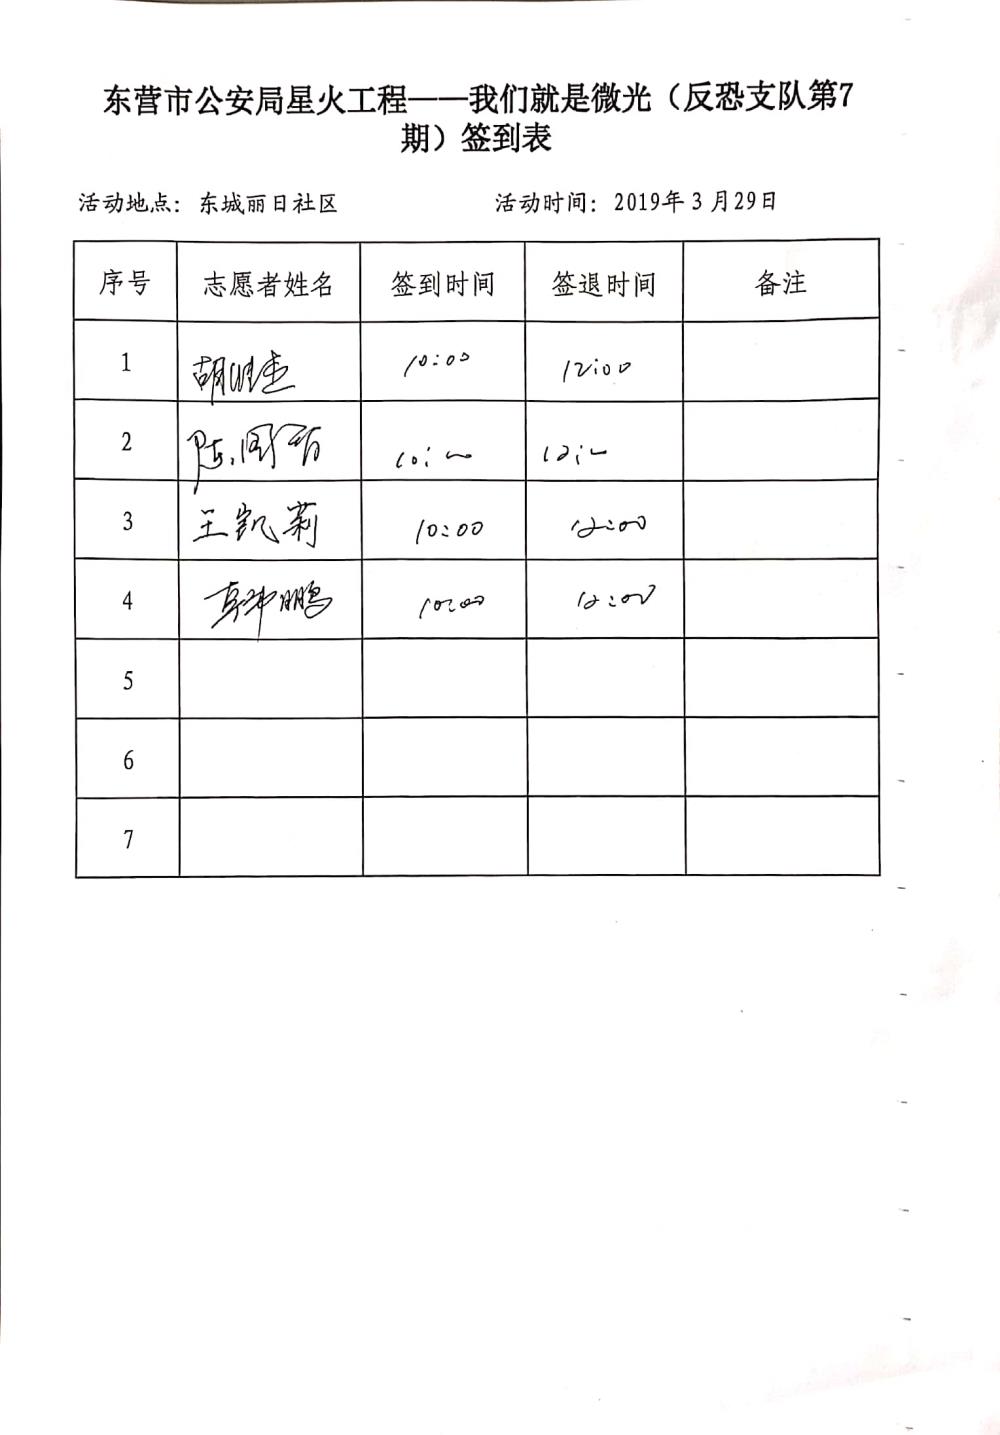 东营市公安局星火工程——我们就是微光（反恐支队第7
期）签到表
活动地点：东城丽日社区 活动时间：2019年3月29日
序号 志愿者姓名 签到时间 签退时间 备注
1 胡 10:00 12:00
2 陈 10: 12:
3 王凯莉 10:00 12:00
4 鹏 10:00 12:00
5
6
7